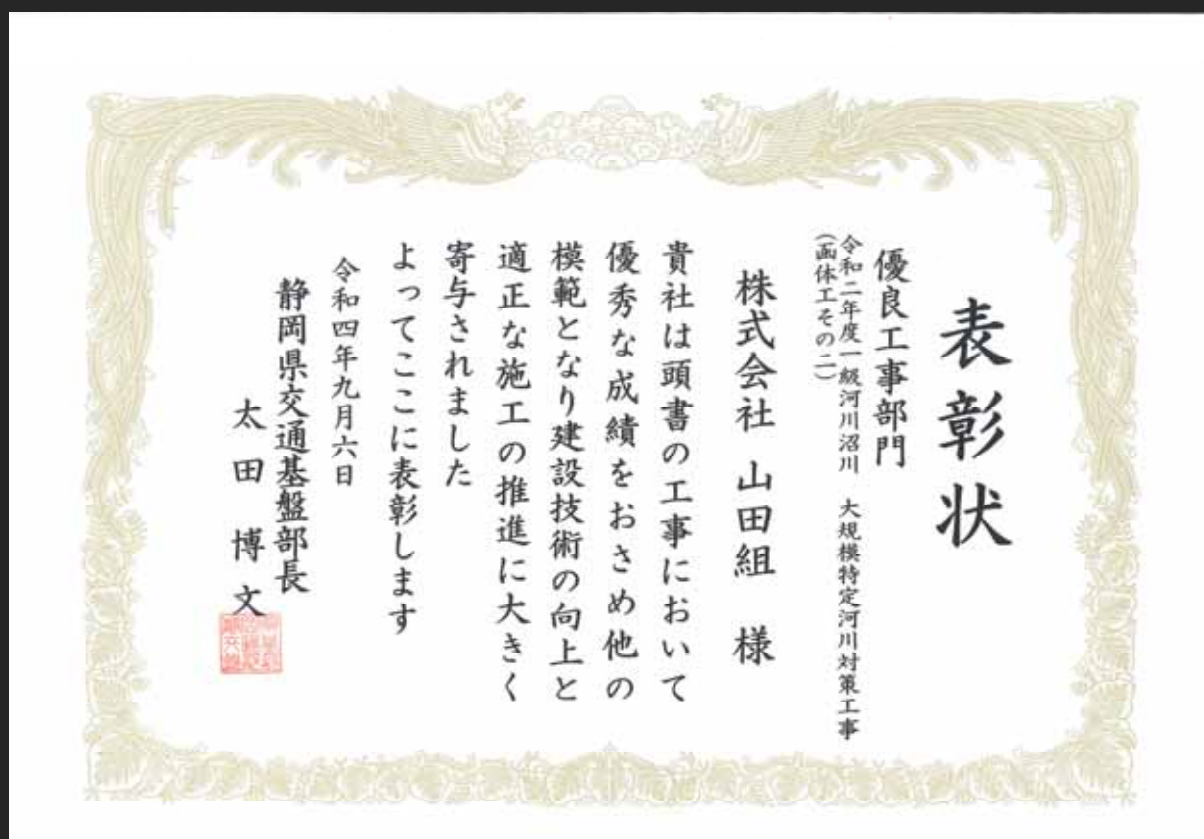 表彰状
優良工事部門
令和二年度一級河川沼川　大規模特定河川対策工事
(函体工その二)
株式会社 山田組　様
貴社は頭書の工事において
優秀な成績をおさめ他の
模範となり建設技術の向上と
適正な施工の推進に大きく
寄与されました
よってここに表彰します
令和四年九月六日
静岡県交通基盤部長
太田博文